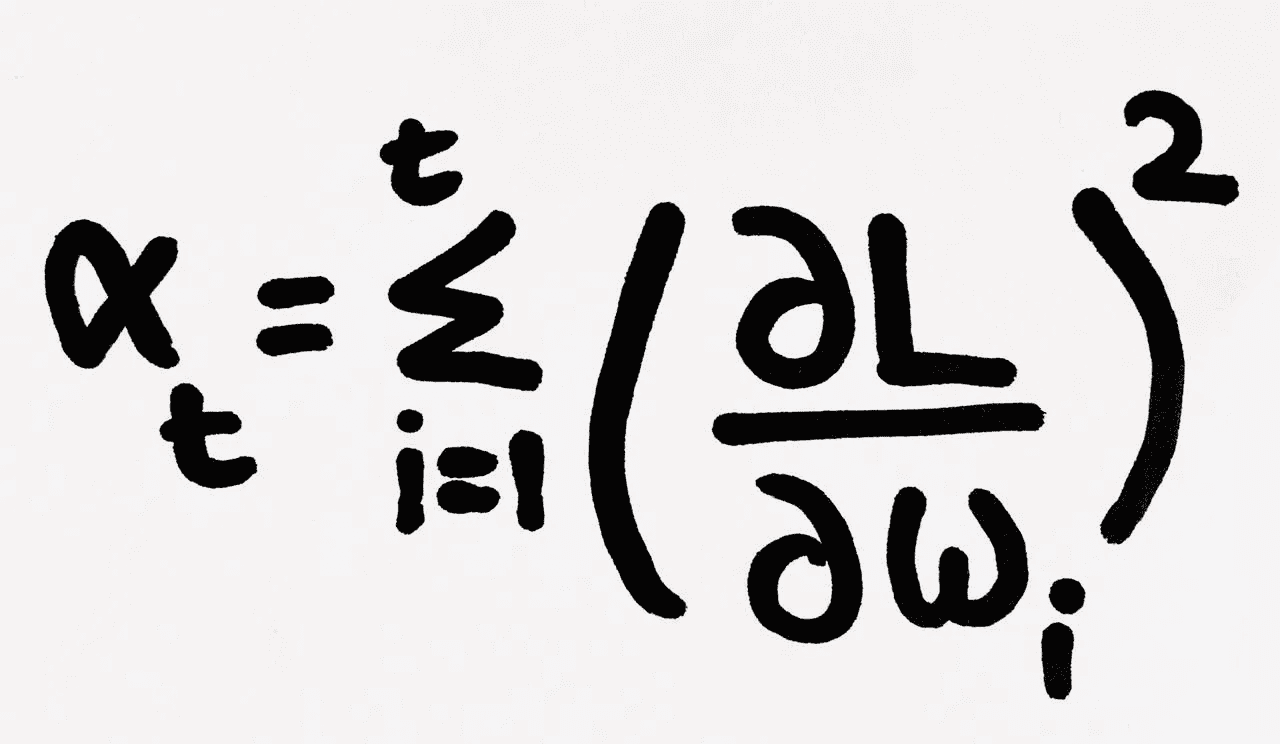 α_t = Σ_{i=1}^{t} (∂L/∂ω_i)^2